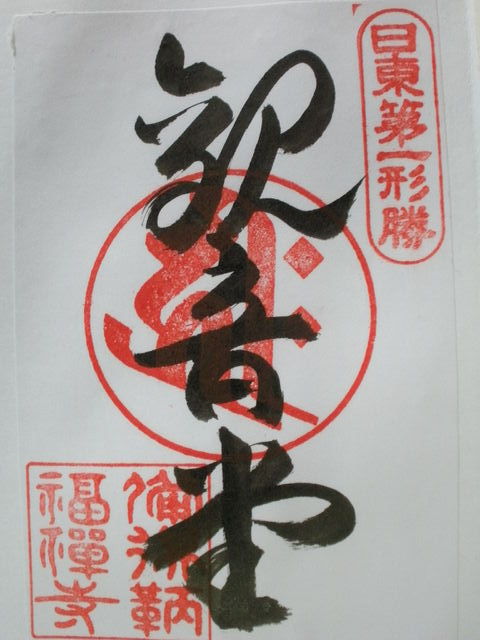 日東第一形勝
観音堂
備後鞆
福禅寺